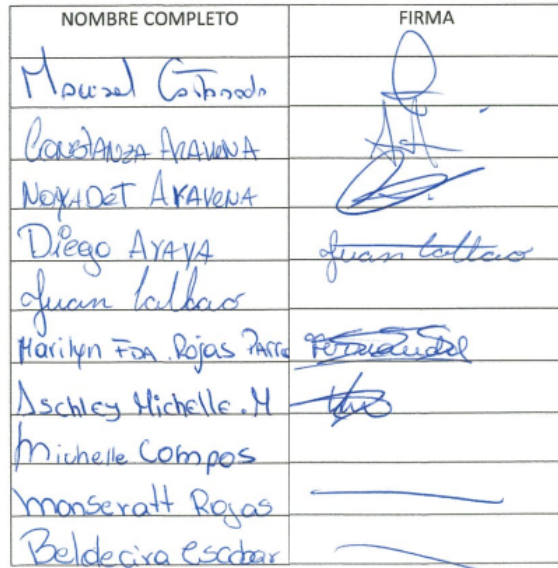 NOMBRE COMPLETO FIRMA
Marisel
CONSTANZA ARAVENA
ARAVENA
Diego ARAYA Juan Callao
Juan Callao
Marilyn FDA. Rojas PARRA
Aschley Michelle.M
Michelle Campos
Monseratt Rojas
Beldecira Escobar